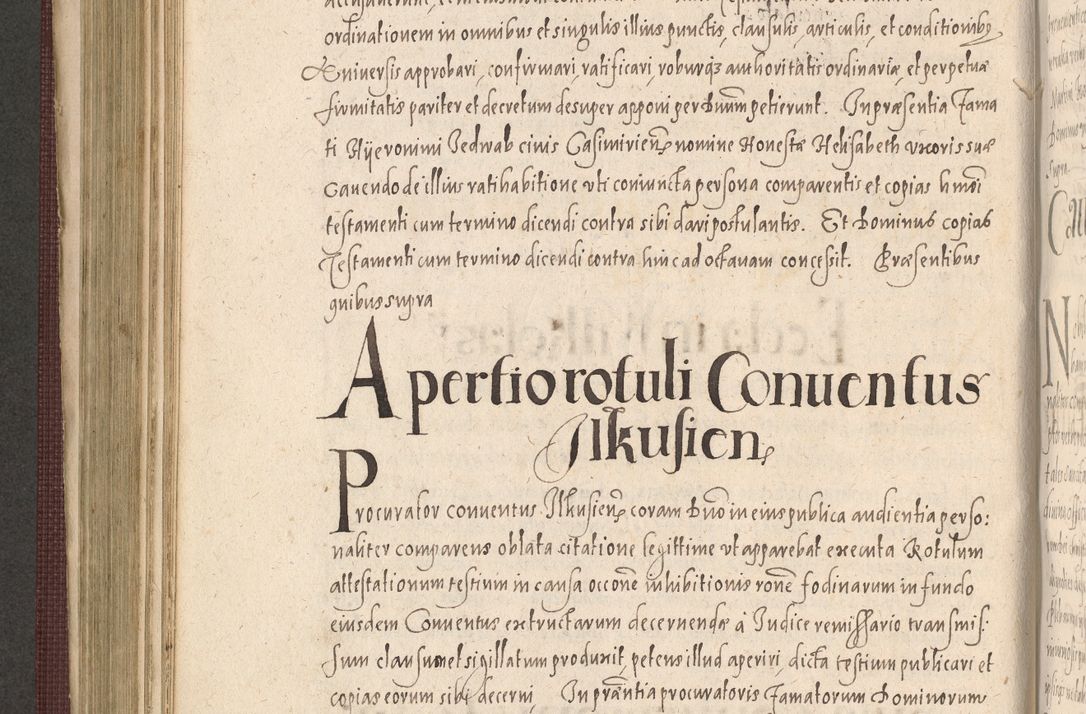 ordinationem in omnibus et singulis illius punctis, clausulis, articulis, et conditionibꝫ
Vniuersis approbari, confirmari, ratificari, roburqꝫ authoritatis ordinariæ et perpetuæ
firmitatis pariter et decretum desuper apponi per Dnum̃ petierunt. In præsentia Jama
ti Hÿeronimi Jedwab ciuis Casimirień nomine Honestæ Helisabeth vxoris suæ
Cauendo de illius ratihabitione vti coniuncta persona comparentis et copias hmõi
testamenti cum termino dicendi contra sibi dari postulantis. Et Dominus copias
Testamenti cum termino dicendi contra hinc ad octauam concessit. Præsentibus
quibus supra
Apertio rotuli Conuentus
Ilkusień
Procurator conuentus Ilkusień coram Dno in eius publica audientia perso:
naliter comparens oblata citatione legittime vt apparebat executa Rotulum
attestationum testium in causa occõne inhibitionis rõne fodinarum in fundo
eiusdem Conuentus extructarum decernendæ à Judice remissario transmis:
sum clausum et sigillatum produxit, petens illud aperiri, dicta testium publicari et
copias eorum sibi decerni In prãntia procuratoris Jamatorum Dominorum